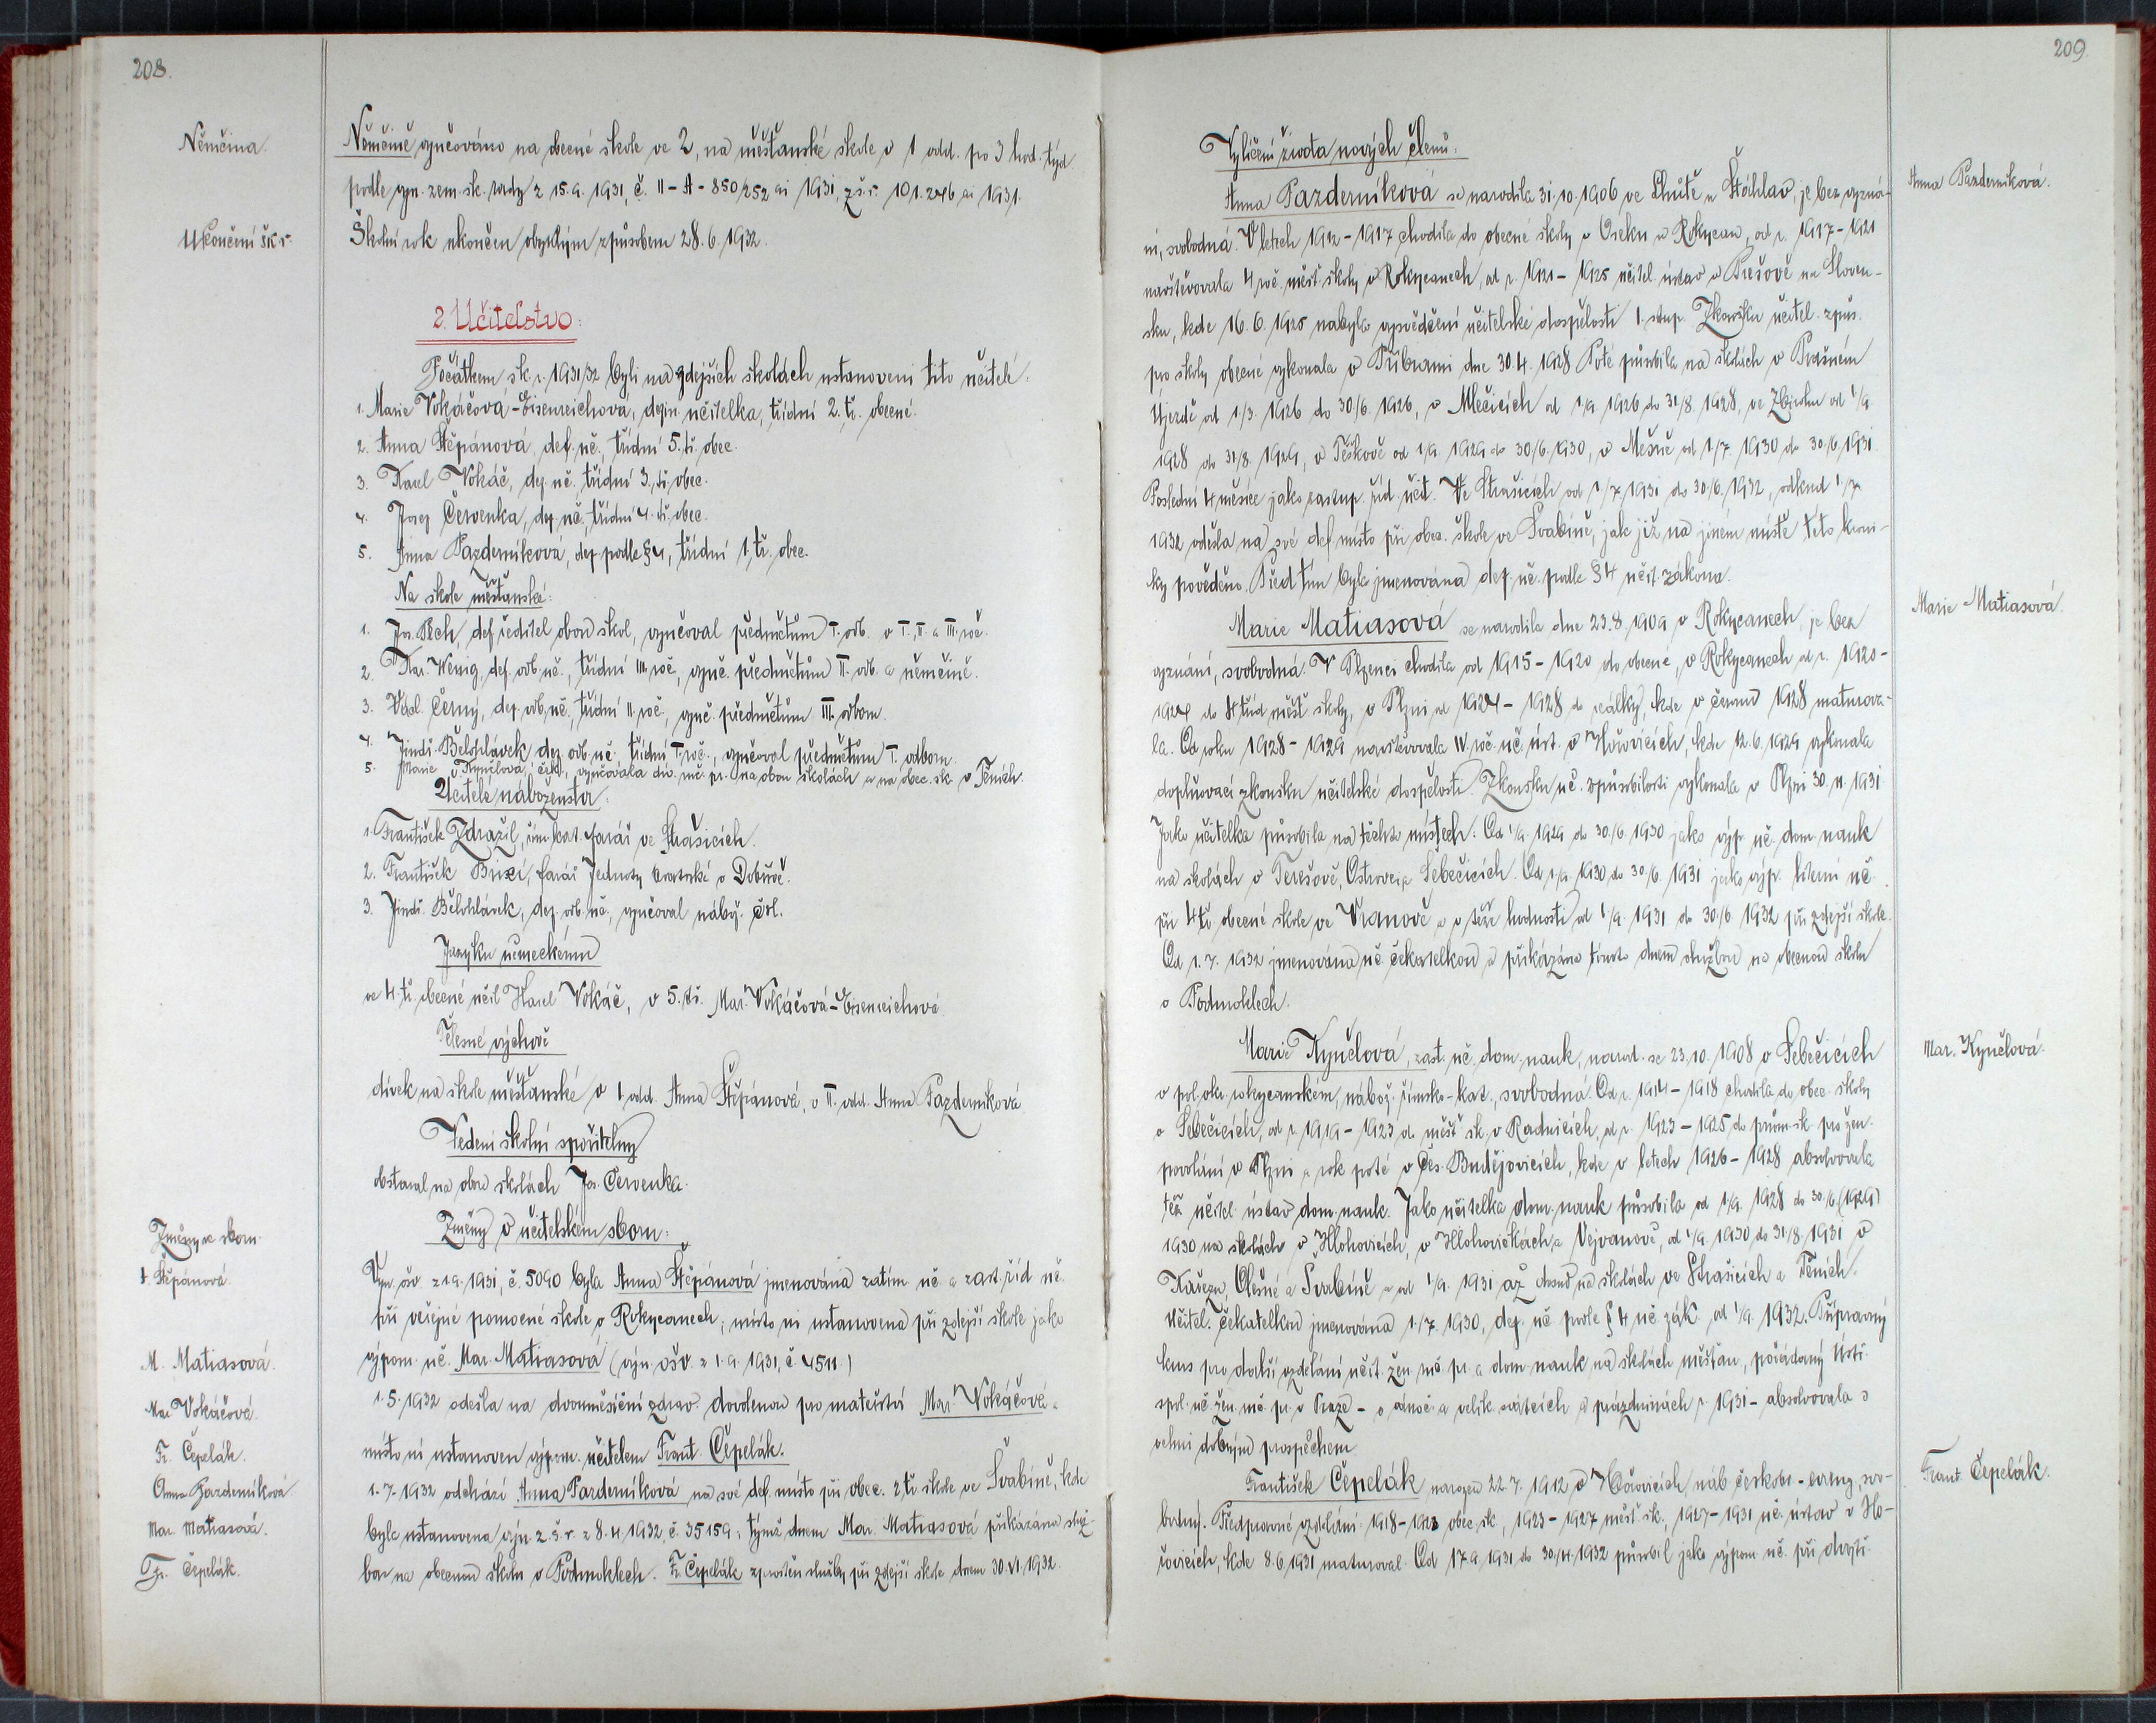 208.
Němčina.
Němčině vyučováno na obecné škole ve 2, na měšťanské škole v 1 odd. po 3 hod. týd.
podle vyn. zem. šk. rady z 15.9.1931, č. II-A-850/252 ai 1931, z.š.r. 101.246 ai 1931.
Ukončení šk. r.
Školní rok ukončen obvyklým způsobem 28.6.1932.
2. Učitelstvo:
Počátkem šk. r. 1931/32 byli na zdejších školách ustanoveni tito učitelé:
1. Marie Vokáčová-Eisenreichová, defin. učitelka, třídní 2. tř. obecné.
2. Anna Štěpánová, def. uč., třídní 5. tř. obec.
3. Karel Vokáč, def. uč., třídní 3. tř. obec.
4. Josef Červenka, def. uč., třídní 4. tř. obec.
5. Anna Pazderníková, def. podle § 4, třídní 1. tř. obec.
Na škole měšťanské:
1. Jos. Pech, def. ředitel obou škol, vyučoval předmětům I. odb. v I. II. a III. roč.
2. Kar. Wenig, def. odb. uč., třídní III. roč., vyuč. předmětům II. odb. a němčině.
3. Václ. Černý, def. odb. uč., třídní II. roč., vyuč. předmětům III. odboru.
4. Jindř. Bělohlávek, def. odb. uč. třídní I. roč., vyučoval předmětům I. odboru.
5. Marie Kynčlová, ček., vyučovala dív. ruč. pr. na obou školách a na obec. šk. v Těních.
Učitelé náboženství:
1. František Zdražil, řím. kat. farář ve Strašicích.
2. František Brixí, farář Jednoty bratrské v Dobřívě.
3. Jindř. Bělohlávek, def. odb. uč., vyučoval nábož. čsl.
Jazyku německému
ve 4. tř. obecné učil Karel Vokáč, v 5. tř. Mar. Vokáčová-Eisenreichová.
Tělesné výchově
dívek na škole měšťanské v I. odd. Anna Štěpánová, v II. odd. Anna Pazderníková.
Vedení školní spořitelny
obstaral na obou školách Jos. Červenka.
Změny ve sboru.
Změny v učitelském sboru:
A. Štěpánová.
Vyn. ošv. z 1.9.1931, č. 5090 byla Anna Štěpánová jmenována zatím. uč. a zast. říd. uč.
při veřejné pomocné škole v Rokycanech; místo ní ustanovena při zdejší škole jako
M. Matiasová.
výpom. uč. Mar. Matiasová (výn. ošv. z 1.9.1931, č. 4511.)
Mar. Vokáčová.
1.5.1932 odešla na dvouměsíční zdrav. dovolenou pro mateřství Mar. Vokáčová a
Fr. Čepelák.
místo ní ustanoven výpom. učitelem Frant. Čepelák.
Anna Pazderníková
1.7.1932 odchází Anna Pazderníková na své def. místo při obec. 2 tř. škole ve Svabíně, kde
Mar. Matiasová.
byla ustanovena výn. z.š.r. z 8.4.1932, č. 35159; týmž dnem Mar. Matiasová přikázána služ-
Fr. Čepelák.
bou na obecnou školu v Podmoklech. Fr. Čepelák zproštěn služby při zdejší škole dnem 30.VI.1932.
209.
Vylíčení života nových členů:
Anna Pazderníková.
Anna Pazderníková se narodila 31.10.1906 ve Lhůtě u Šťáhlav, je bez vyzná-
ní, svobodná. V letech 1912-1917 chodila do obecné školy v Oseku u Rokycan, od r. 1917-1921
navštěvovala 4 roč. měšť. školy v Rokycanech, od r. 1921-1925 učitel. ústav v Prešově na Sloven-
sku, kde 16.6.1925 nabyla vysvědčení učitelské dospělosti 1. stup. Zkoušku učitel. způs.
pro školy obecné vykonala v Příbrami dne 30.4.1928. Poté působila na školách v Prašném
Újezdě od 1/3. 1926 do 30/6. 1926, v Mlečicích od 1/9. 1926 do 31/8. 1928, ve Zbirohu od 1/9.
1928 do 31/8. 1929, v Těškově od 1/9. 1929 do 30/6. 1930, v Mešně od 1/7. 1930 do 30/6. 1931.
Poslední 4 měsíce jako zastup. říd. učit. Ve Strašicích od 1/7. 1931 do 30/6. 1932, odkud 1/7.
1932 odešla na své def. místo při obec. škole ve Svabíně, jak již na jiném místě této kroni-
ky pověděno. Před tím byla jmenována def. uč. podle § 4 učit. zákona.
Marie Matiasová.
Marie Matiasová se narodila dne 23.8.1909 v Rokycanech, je bez
vyznání, svobodná. V Plzenci chodila od 1915-1920 do obecné, v Rokycanech od r. 1920-
1924 do 4 tříd měšť. školy, v Plzni od 1924-1928 do reálky, kde v červnu 1928 maturova-
la. Od roku 1928-1929 navštěvovala IV. roč. uč. úst. v Hořovicích, kde 12.6.1929 vykonala
doplňovací zkoušku učitelské dospělosti. Zkoušku uč. způsobilosti vykonala v Plzni 30.11.1931.
Jako učitelka působila na těchto místech: Od 1/9. 1929 do 30/6. 1930 jako výp. uč. dom. nauk
na školách v Terešově, Ostrovci a Sebečicích. Od 1/9. 1930 do 30/6. 1931 jako výp. literní uč.
při 4 tř. obecné škole ve Vranově a v téže hodnosti od 1/9. 1931 do 30/6. 1932 při zdejší škole.
Od 1.7.1932 jmenována uč. čekatelkou a přikázána tímto dnem službou na obecnou školu
v Podmoklech.
Mar. Kynčlová.
Marie Kynčlová, zast. uč. dom. nauk, narod. se 23.10.1908 v Sebečicích
v pol. okr. rokycanském, nábož. římsko-kat., svobodná. Od r. 1914-1918 chodila do obec. školy
v Sebečicích, od r. 1919-1923 do měšť. šk. v Radnicích, od r. 1923-1925 do prům. šk. pro žen.
povolání v Plzni a rok poté v Čes. Budějovicích, kde v letech 1926-1928 absolvovala
též učitel. ústav dom. nauk. Jako učitelka dom. nauk působila od 1/9. 1928 do 30/6. (1929)
1930 na školách v Hlohovicích, v Hlohovičkách a Vejvanově, od 1/9. 1930 do 31/8. 1931 v
Kařezu, Olešné a Svabíně a od 1/9. 1931 až dosud na školách ve Strašicích a Těních.
Učitel. čekatelkou jmenována 1/7. 1930, def. uč. podle § 4 uč. zák. od 1/9. 1932. Přípravný
kurs pro další vzdělání učit. žen. ruč. pr. a dom. nauk na školách měšťan., pořádaný Ústř.
spol. uč. žen. ruč. pr. v Praze - o vánoč. a velik. svátcích a prázdninách r. 1931 - absolvovala s
velmi dobrým prospěchem.
Frant. Čepelák.
František Čepelák narozen 22.7.1912 v Hořovicích, náb. českobr.-evang., svo-
bodný. Předpravné vzdělání: 1918-1923 obec. šk., 1923-1927 měšť. šk., 1927-1931 uč. ústav v Ho-
řovicích, kde 8.6.1931 maturoval. Od 17.9.1931 do 30/4. 1932 působil jako výpom. uč. při dvojtř.